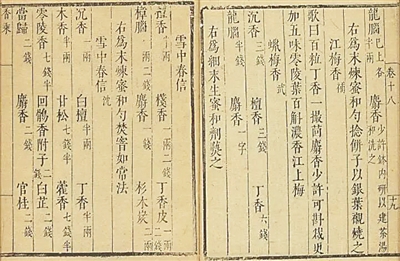 卷十八　十九
龍腦已上各半兩　麝香少許缽內研以建茶湯和洗之
右為末煉蜜和勻捻餅子以銀葉襯燒之
江梅香　補
歌曰百粒丁香一撮茴麝香少許可斟裁更
加五味零陵葉百斛濃香江上梅
蠟梅香　武
沉香三錢　檀香三錢　丁香六錢
龍腦半錢　麝香一字
右為細末生蜜和劑爇之
雪中春信
檀香半兩　棧香一兩二錢　丁香皮一兩二錢
樟腦一兩二錢　麝香一錢　杉木炭二兩
右為末煉蜜和勻焚窨如常法
雪中春信　沈
沉香一兩　白檀半兩　丁香半兩
木香半兩　甘松七錢半　藿香七錢半
零陵香七錢半　回鶻香附子二錢　白芷二錢
當歸二錢　麝香二錢　官桂二錢
香乘